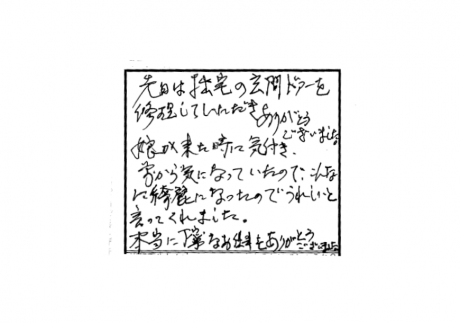 先日は拙宅の玄関ドアーを
修理していただきありがとうございました
娘が来た時に気付き、
前から気になっていたので、こんな
に綺麗になったのでうれしいと
言ってくれました。
本当に丁寧なお仕事もありがとうございました